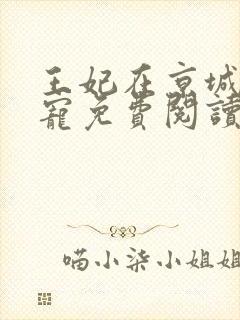 王妃在京城
寵免費閱讀
喵小柒小姐姐